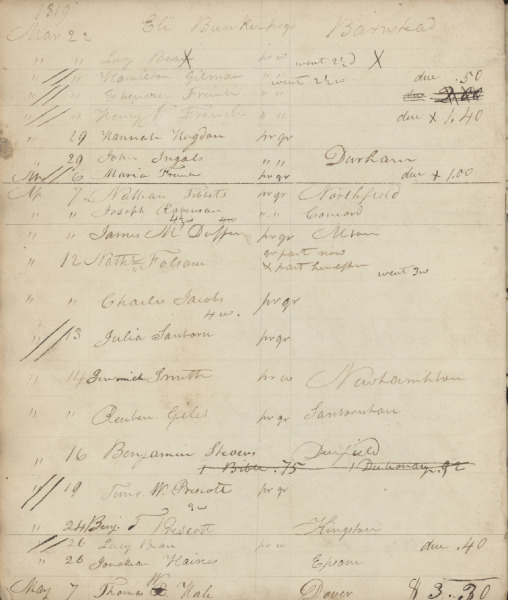 1819
Mar 22 Eli Bunker pr qr Barnstead
" " Lucy Bean X pr w went 2½ d X
" " Hamilton Gilman " " went 2½ w due .50
" " Ebenezer French " " due
" " Henry F French " " due X 1,40
" 29 Hannah Hogdon pr qr
" 29 John Ingals " " Durham
6 Maria French pr qr due + 1.00
Ap 7 Nathan Tibbets pr qr Northfield
" " Joseph Robinson " " Concord
4 w
" " James Mc Duffee pr qr Alton
qr part now
" 12 Nath Folsom X part hereafter
went 3w
" " Charles Jacobs pr qr
4 w.
" 13 Julia Sanborn pr qr
" 14 Jeremiah Smith pr w Newhampton
" " Reuben Giles pr qr Sanbornton
" 16 Benjamin Stevens Deerfield
1 Bible .75 1 Dictionary pr. 92
" 19 Tim. W. Prescott pr qr
3w
" 24 Benj. T Prescott Kingston
" 26 Lucy Bean pr w due .40
" 26 Jonathan Haines Epsom
May 7 Thomas W Hale Dover $ 3.30